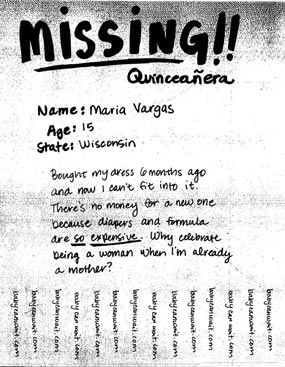 MISSING!!
Quinceañera
Name: Maria Vargas
Age: 15
State: Wisconsin
Bought my dress 6 months ago
and now I can't fit into it.
There's no money for a new one
because diapers and formula
are so expensive. Why celebrate
being a woman when I'm already
a mother?
babycanwait.com
babycanwait.com
babycanwait.com
babycanwait.com
babycanwait.com
babycanwait.com
babycanwait.com
babycanwait.com
babycanwait.com
babycanwait.com
babycanwait.com
babycanwait.com
babycanwait.com